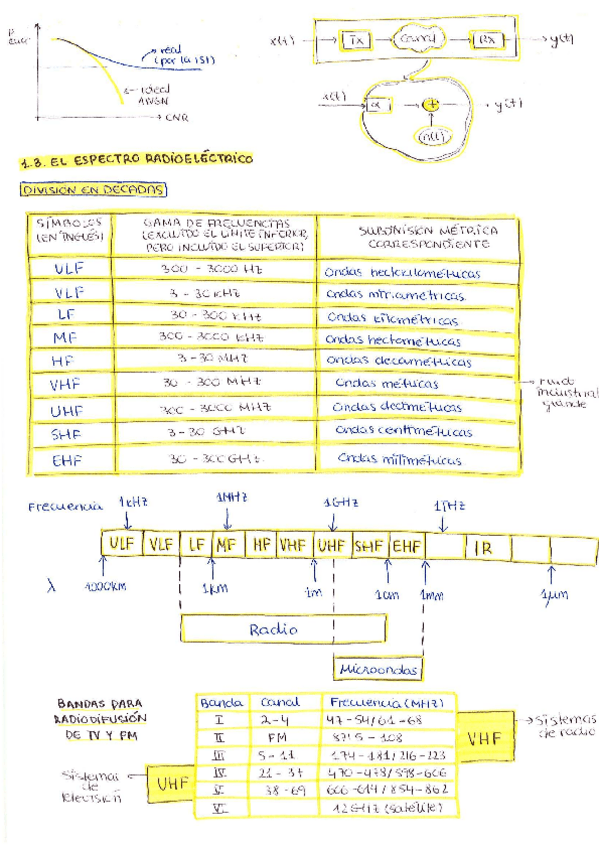 real
(por la ISI)
ideal
AWGN
CNR
x(t)
Tx
Canal
Rx
y(t)
x(t)
α
+
y(t)
n(t)
1.3. EL ESPECTRO RADIOELÉCTRICO
DIVISIÓN EN DÉCADAS
SÍMBOLES (EN INGLÉS)
GAMA DE FRECUENCIAS (EXCLUIDO EL LÍMITE INFERIOR, PERO INCLUIDO EL SUPERIOR)
SUBDIVISIÓN MÉTRICA CORRESPONDIENTE
ULF 300 - 3000 HZ Ondas hectokilométricas
VLF 3 - 30 KHZ Ondas miriamétricas
LF 30 - 300 KHZ Ondas kilométricas
MF 300 - 3000 KHZ Ondas hectométricas
HF 3 - 30 MHZ Ondas decamétricas
VHF 30 - 300 MHZ Ondas métricas
ruido industrial grande
UHF 300 - 3000 MHZ Ondas decimétricas
SHF 3 - 30 GHZ Ondas centimétricas
EHF 30 - 300 GHZ Ondas milimétricas
Frecuencia 1KHZ 1MHZ 1GHZ 1THZ
ULF VLF LF MF HF VHF UHF SHF EHF IR
λ 1000KM 1Km 1m 1cm 1mm 1μm
Radio
Microondas
BANDAS PARA
RADIODIFUSIÓN
DE TV Y FM
Banda Canal Frecuencia (MHZ)
I 2-4 47-54/61-68
II FM 87'5 - 108
III 5-11 174-181/216-223
IV 21-37 470-478/598-606
V 38-69 606-614/854-862
VI 12GHZ (satélite)
VHF
Sistemas
de radio
UHF
Sistemas
de
televisión